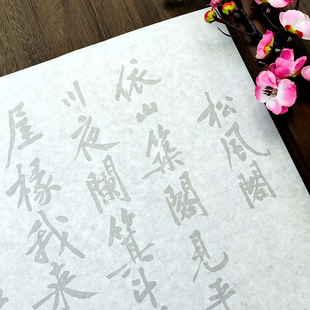 松風閣
依山築閣見平
川夜闌箕斗
屋椽我来